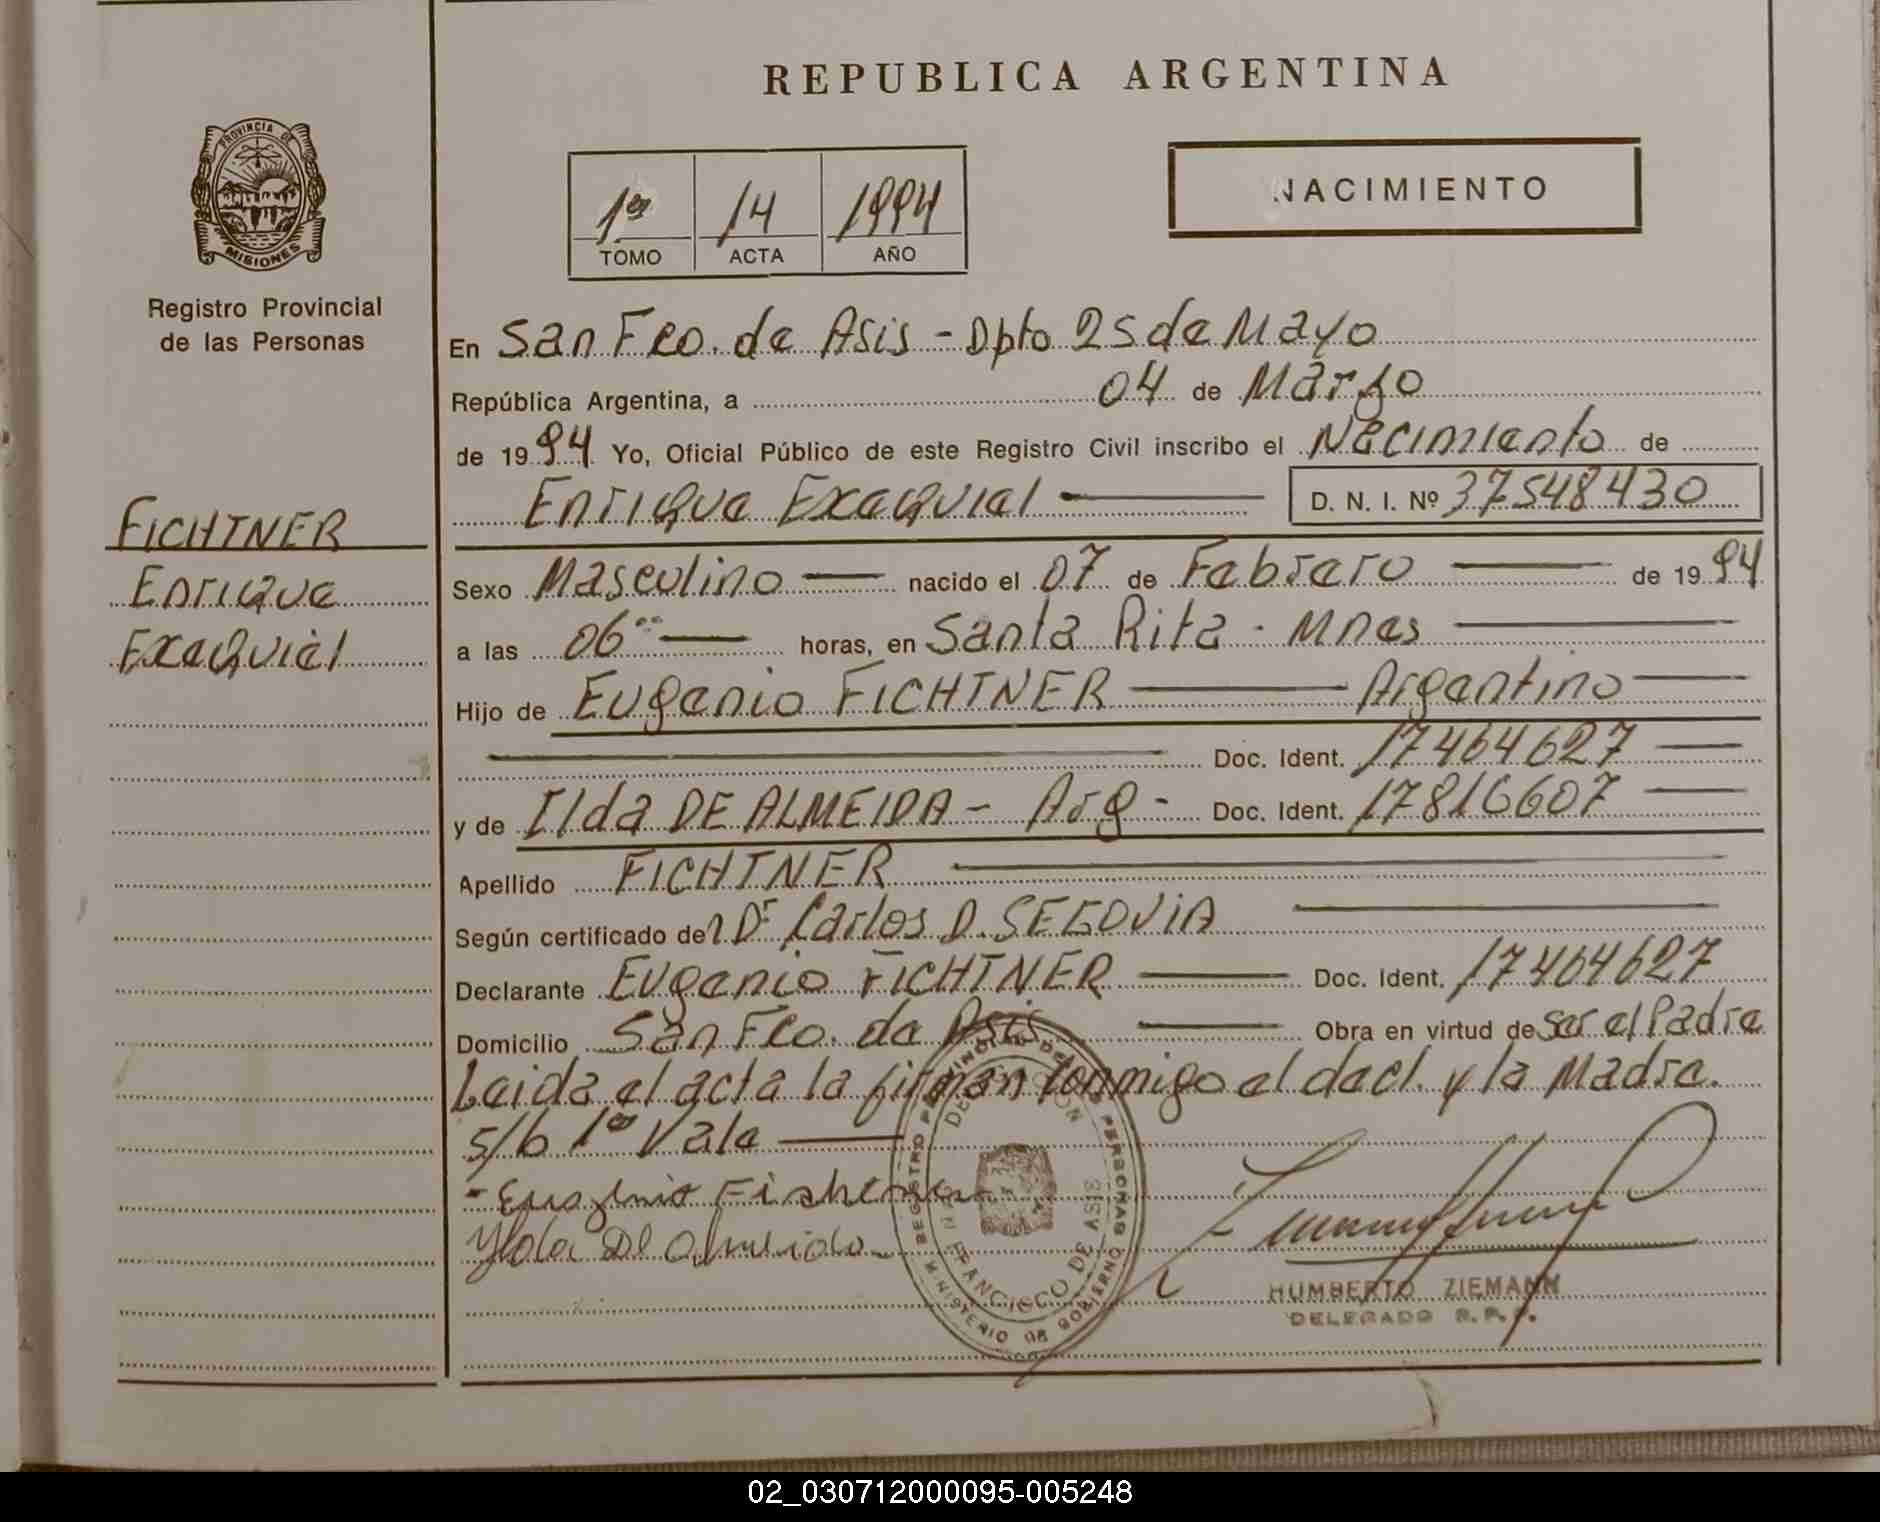 REPUBLICA ARGENTINA
PROVINCIA DE
MISIONES
Registro Provincial
de las Personas
1º 14 1994
TOMO ACTA AÑO
NACIMIENTO
En San Fco. de Asis - Dpto 25 de Mayo
República Argentina, a 04 de Marzo
de 1994 Yo, Oficial Público de este Registro Civil inscribo el Nacimiento de
Enrique Exequiel D. N. I. Nº 37548430
FICHTNER
Enrique
Exequiel
Sexo Masculino nacido el 07 de Febrero de 1994
a las 06 horas, en Santa Rita - Mnes
Hijo de Eugenio FICHTNER Argentino
Doc. Ident. 17464627
y de Ilda DE ALMEIDA - Arg - Doc. Ident. 17816607
Apellido FICHTNER
Según certificado del Dr Carlos D. SEGOVIA
Declarante Eugenio FICHTNER Doc. Ident. 17464627
Domicilio San Fco. de Asis Obra en virtud de Ser el Padre
Leida el acta la firman conmigo el decl. y la Madre.
S/b 1º Vale
REGISTRO PROVINCIAL DE LAS PERSONAS
MINISTERIO DE GOBIERNO
DELEGACION
SAN FRANCISCO DE ASIS
HUMBERTO ZIEMANN
DELEGADO R.P.P.
02_030712000095-005248